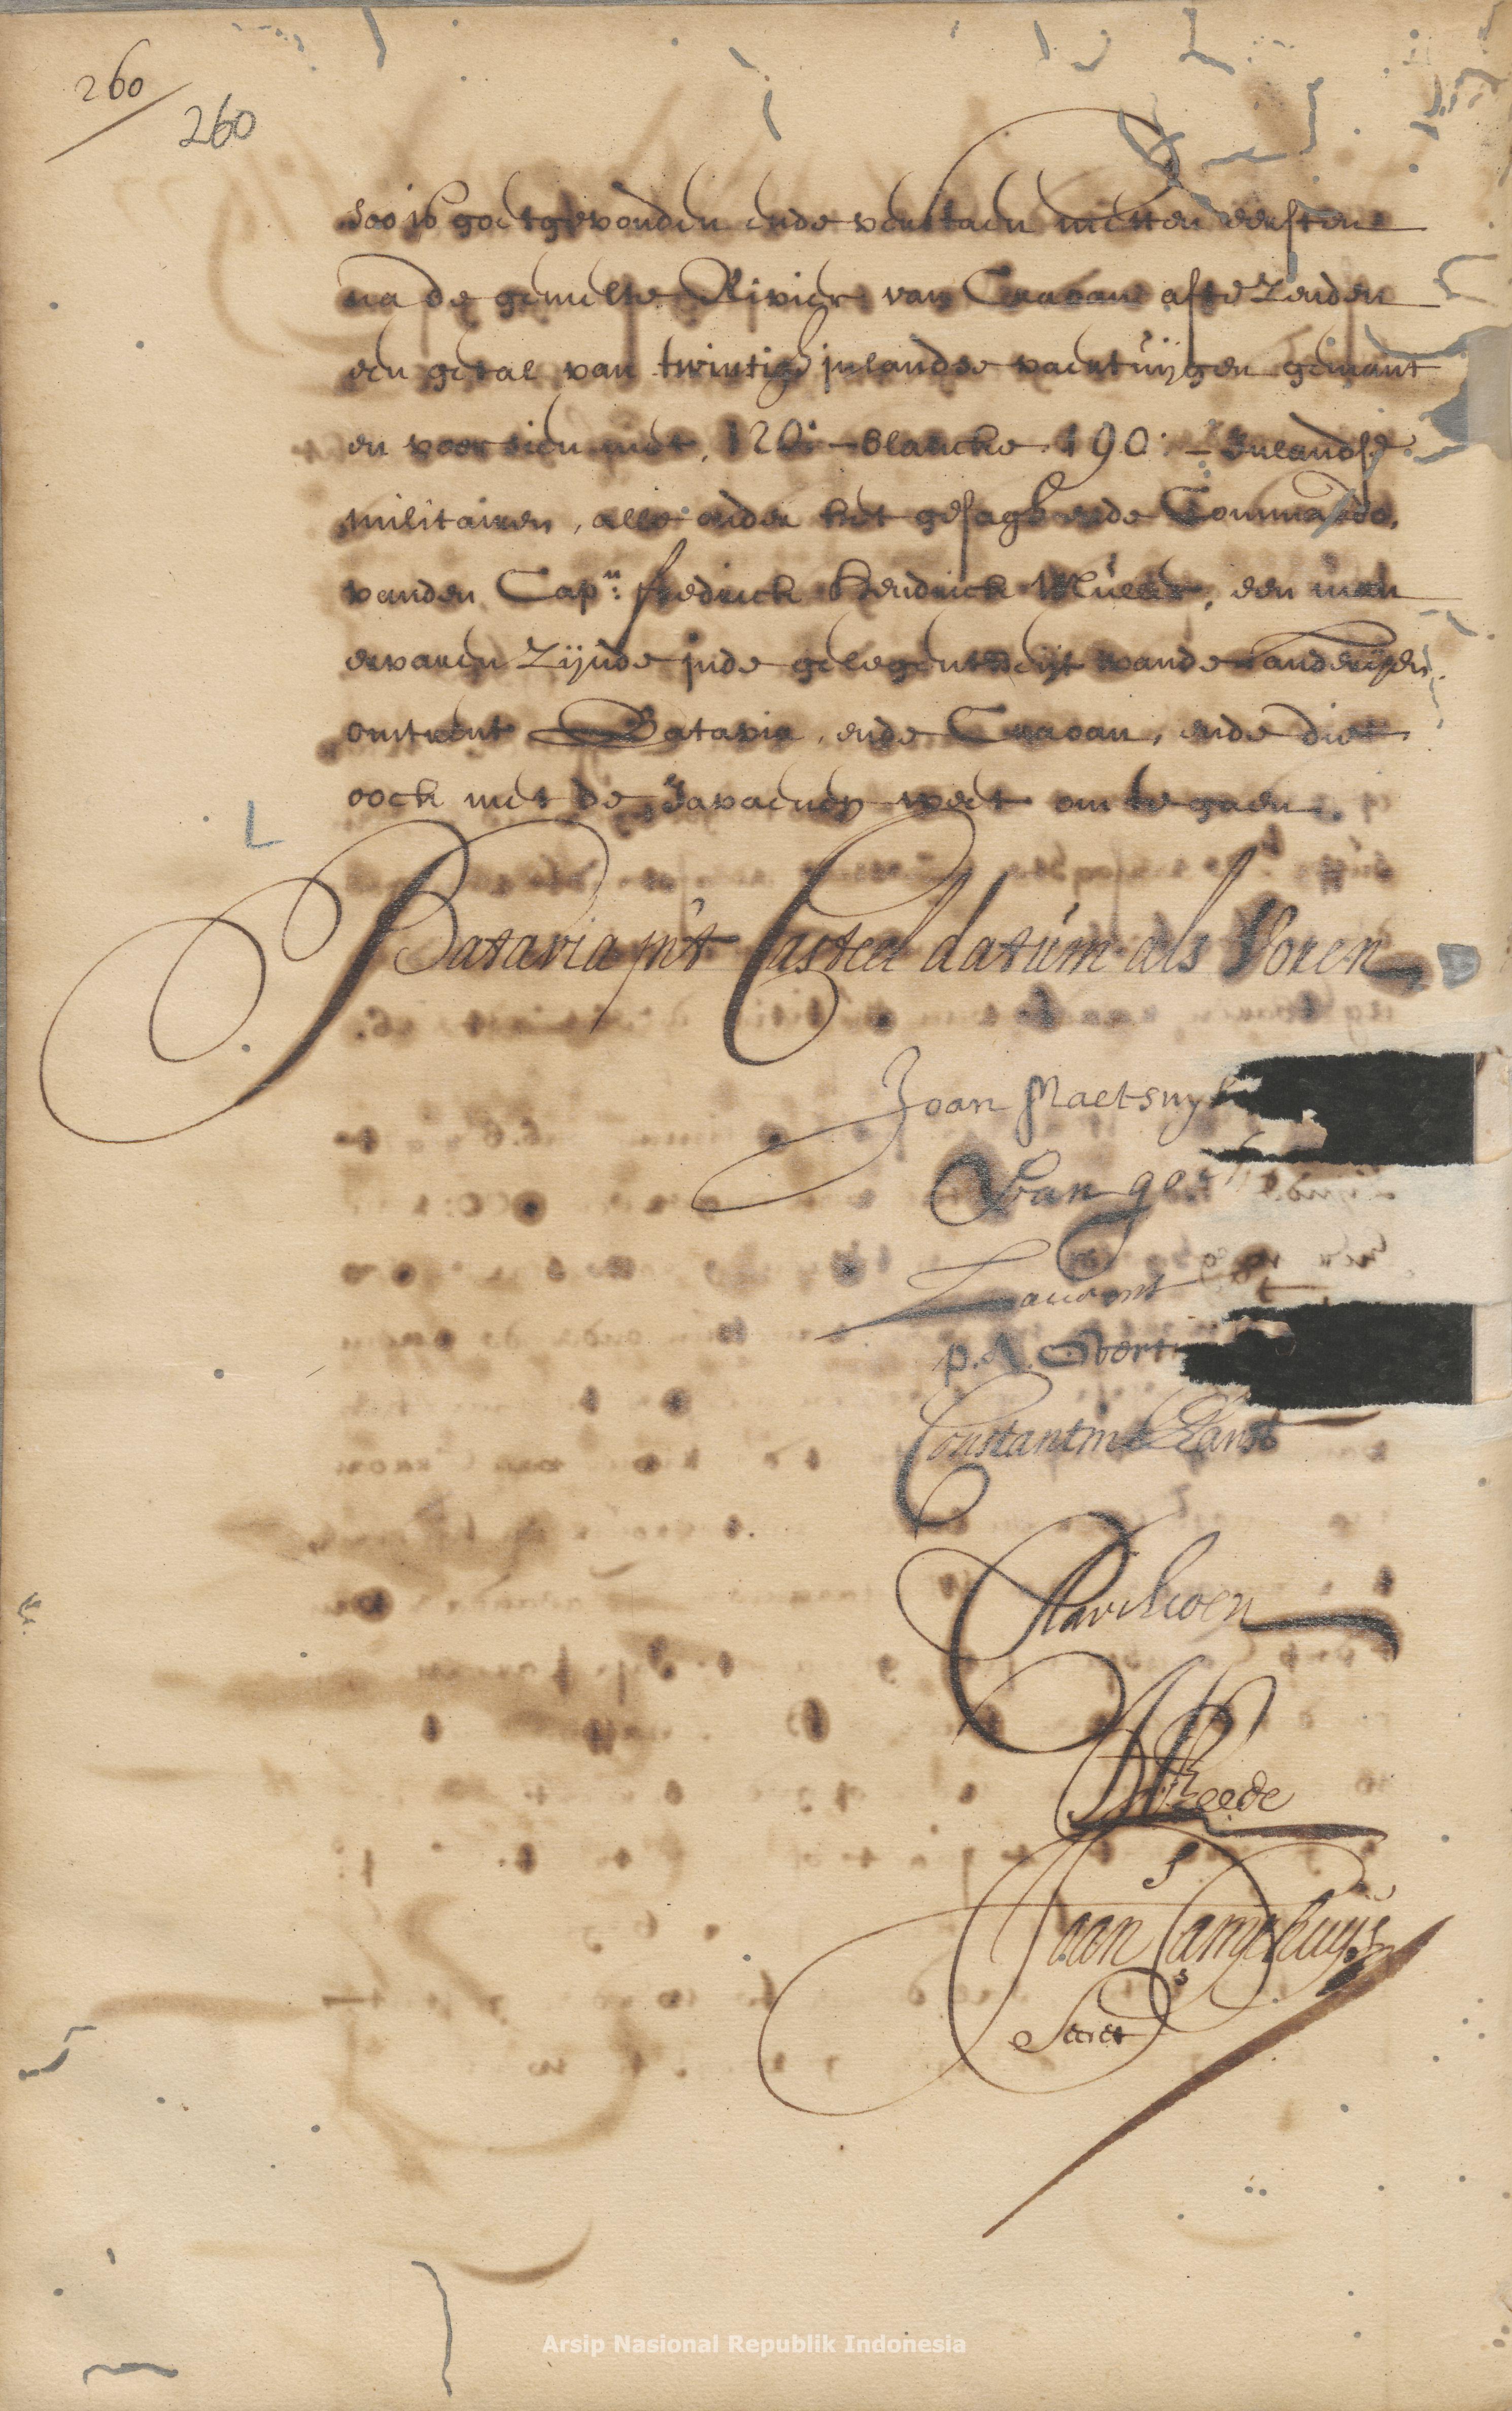 260
260
soo is goetgevonden ende verstaen metten eersten
na de gemelte Rivier van Crawan afte zenden
een getal van twintigh inlandse vaertuijgen gemant
en voorsien met 120:- blancke 190:- Inlandse
militairen, alle onder het gesagh ende Commando,
vanden Cap:n fredrick Hendrick Muller, een man
ervaren zijnde inde gelegentheijt vande Landerijen
omtrent Batavia, ende Crawan, ende die
oock met de Javaenen weet om te gaen.
Batavia int Casteel datum als Voren
Joan Maetsuyk
Van
p. A. Overt
Constantin Ranst
Pavilioen
Reede
Joan Camphuijs
Secret
Arsip Nasional Republik Indonesia